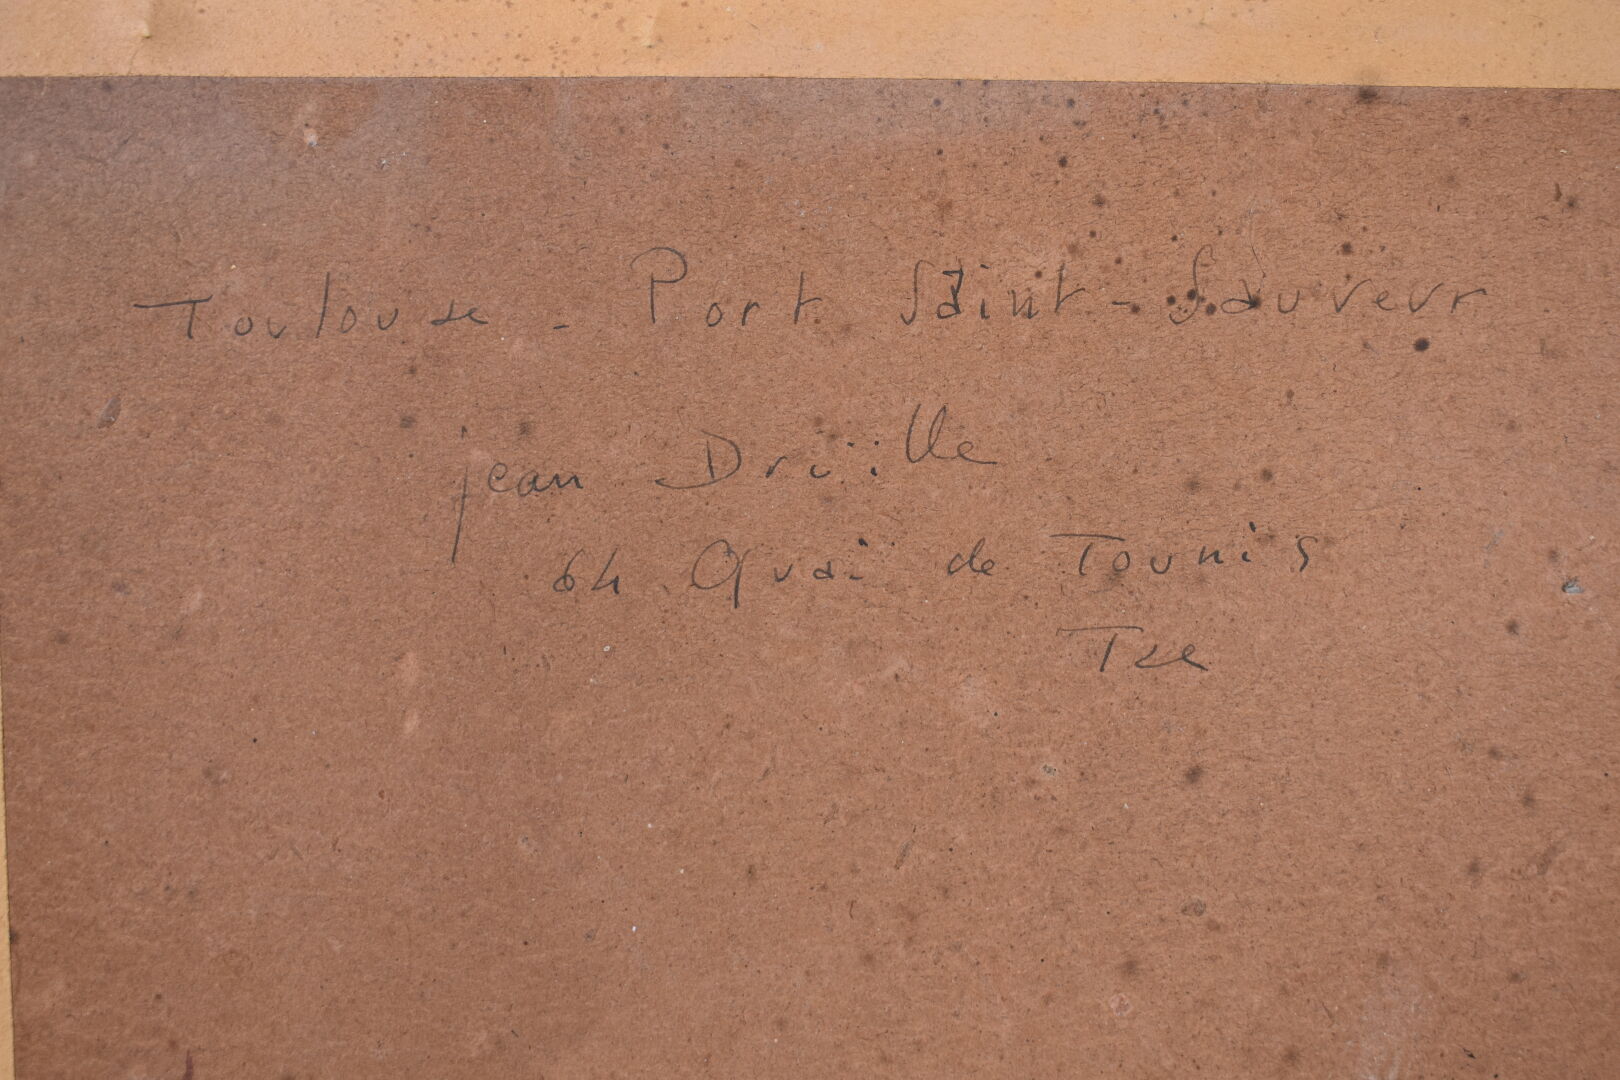 Toulouse - Port Saint-Sauveur
jean Drüille
64 Quai de Tounis
Tse